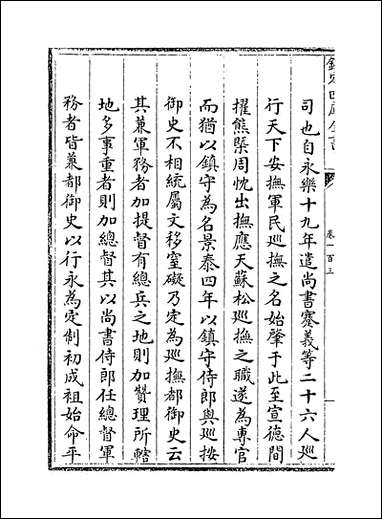 欽定四庫全書
卷一百三
司也自永樂十九年遣尚書蹇義等二十六人廵
行天下安撫軍民廵撫之名始肇于此至宣德間
擢熊槩周忱出撫應天蘇松廵撫之職遂為專官
而猶以鎮守為名景泰四年以鎮守侍郎與廵按
御史不相統屬文移窒礙乃定為廵撫都御史云
其兼軍務者加提督有總兵之地則加贊理所轄
地多事重者則加總督其以尚書侍郎任總督軍
務者皆兼都御史以行永為定制初成祖始命平